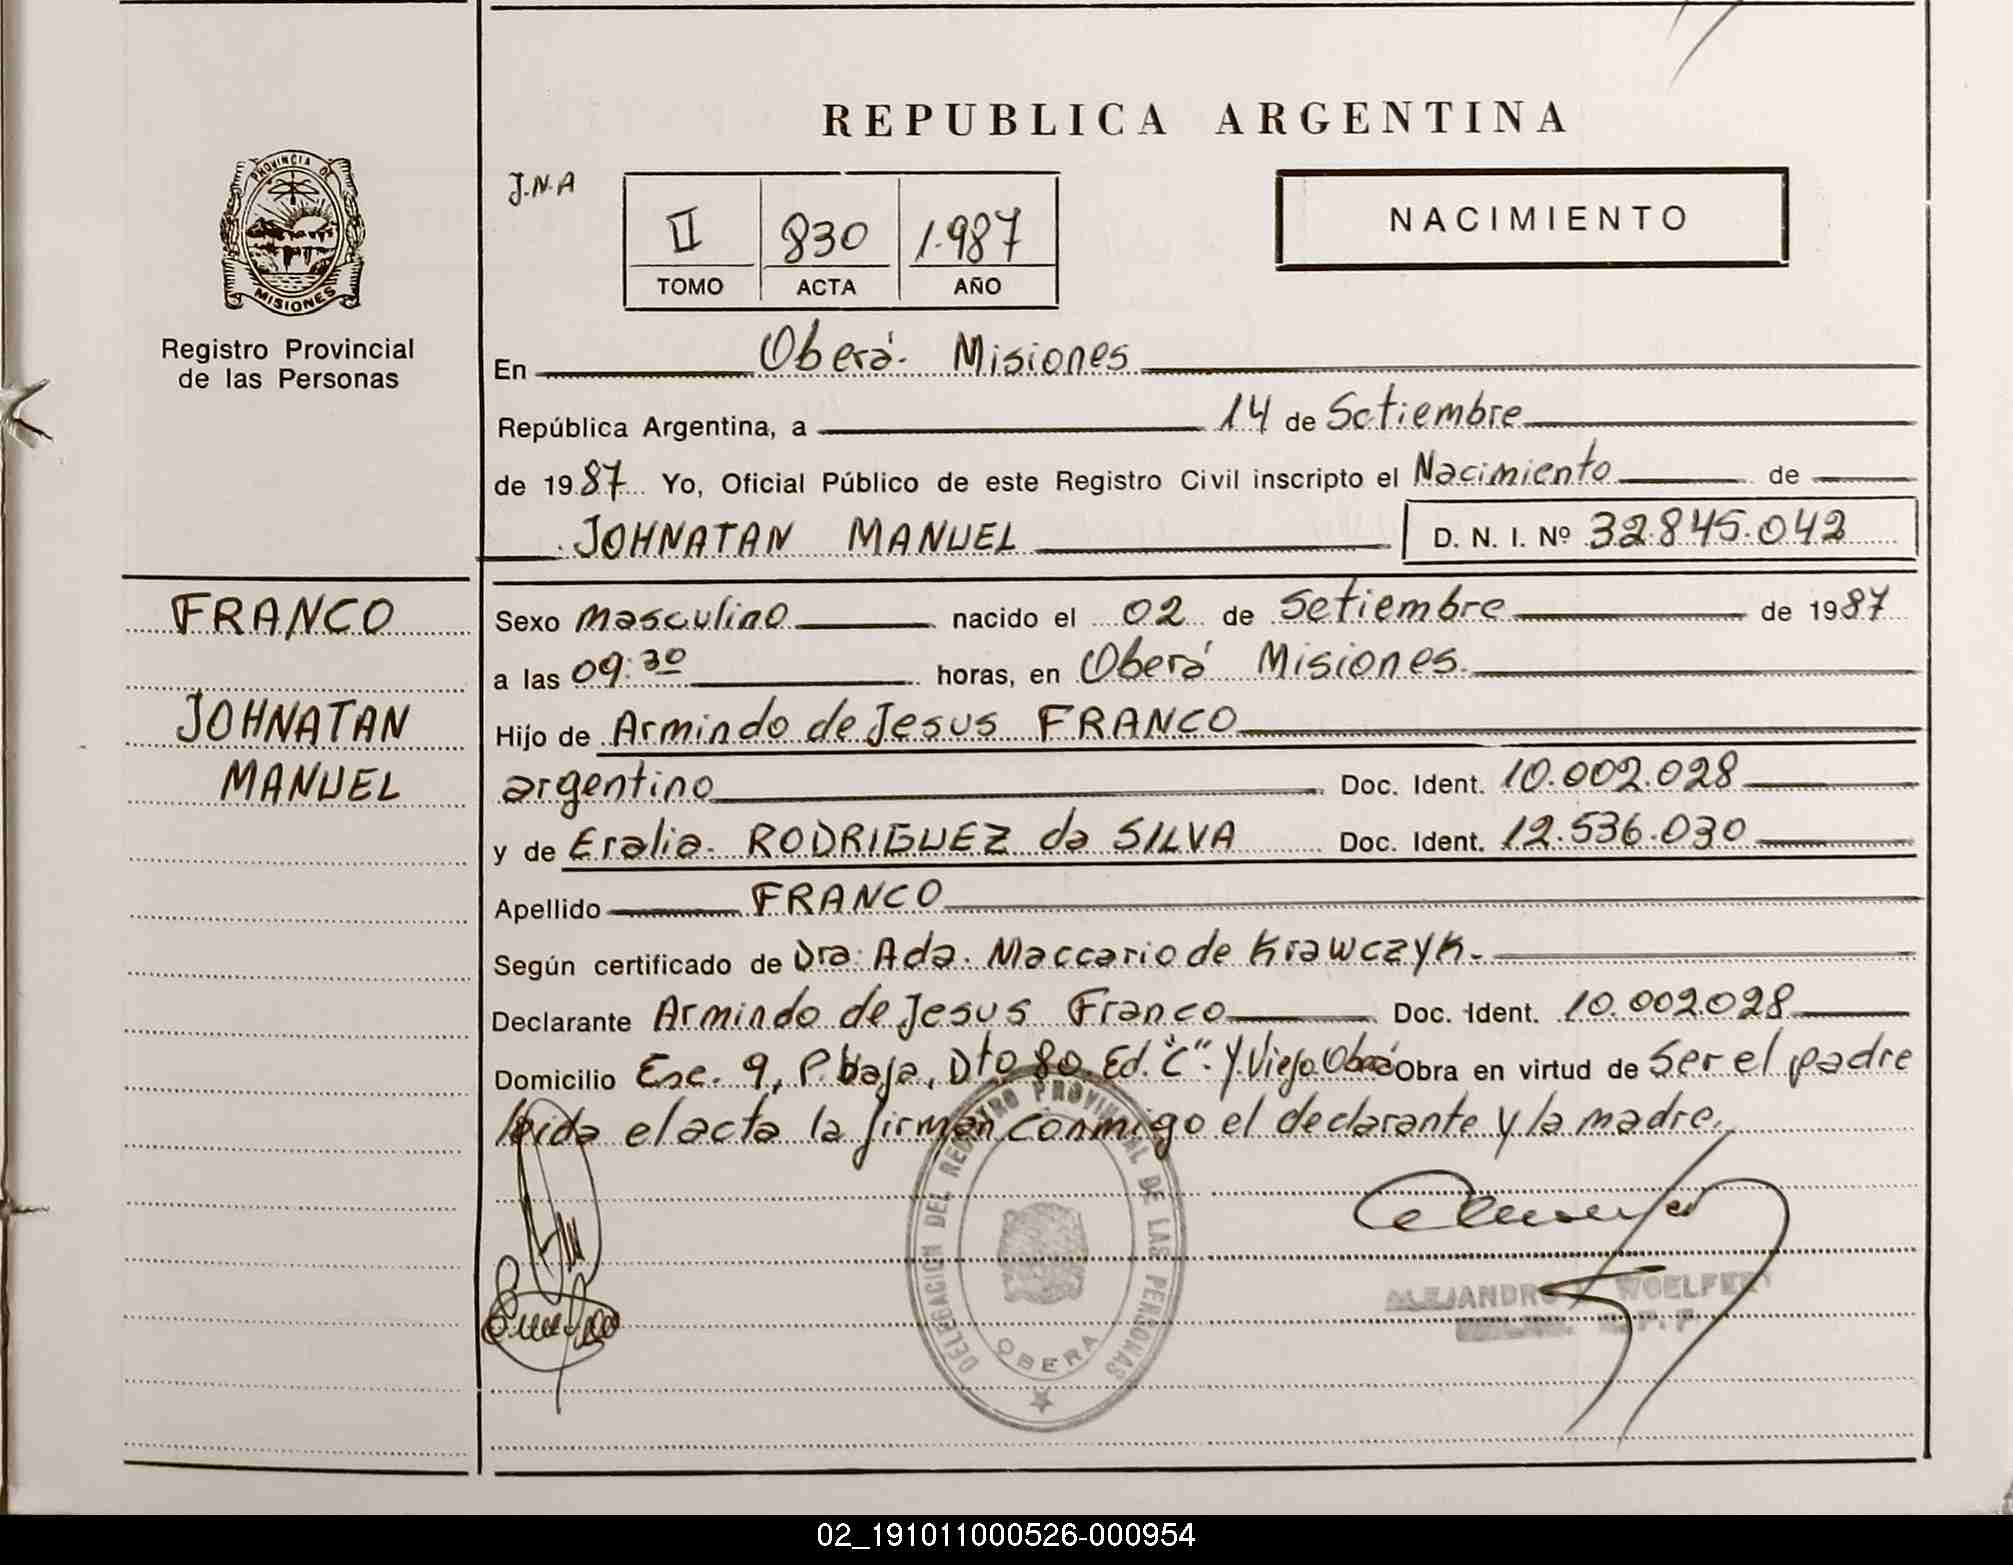 REPUBLICA ARGENTINA
PROVINCIA DE
MISIONES
Registro Provincial
de las Personas
J.N.A
II 830 1.987
TOMO ACTA AÑO
NACIMIENTO
En Oberá - Misiones
República Argentina, a 14 de Setiembre
de 1987 Yo, Oficial Público de este Registro Civil inscripto el Nacimiento de
JOHNATAN MANUEL D. N. I. Nº 32.845.042
FRANCO
JOHNATAN
MANUEL
Sexo masculino nacido el 02 de Setiembre de 1987
a las 09:30 horas, en Oberá Misiones.
Hijo de Armindo de Jesus FRANCO
argentino Doc. Ident. 10.002.028
y de Eralia. RODRIGUEZ da SILVA Doc. Ident. 12.536.030
Apellido FRANCO
Según certificado de Dra. Ada. Maccario de Krawczyk.
Declarante Armindo de Jesus Franco Doc. Ident. 10.002.028
Domicilio Esc. 9, P. baja, Dto 80. Ed. "C". Y. Viejo Oberá Obra en virtud de Ser el padre
leida el acta la firman conmigo el declarante y la madre.
DELEGACION DEL REGISTRO PROVINCIAL DE LAS PERSONAS
OBERA
ALEJANDRO WOELFERT
02_191011000526-000954